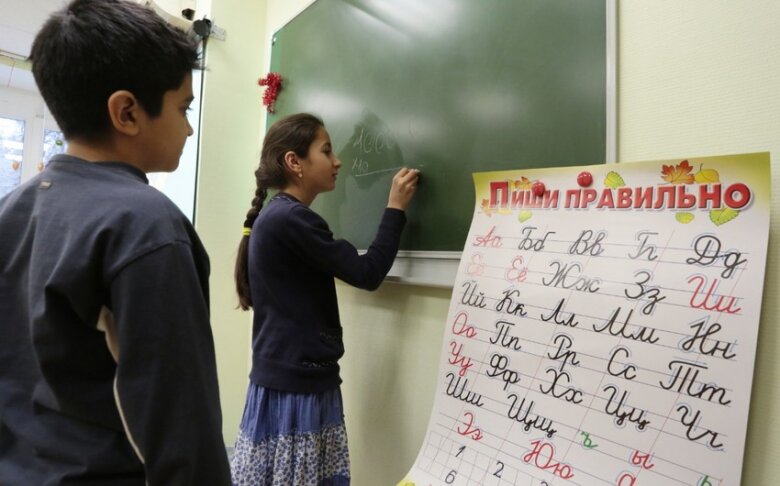 ПИШИ ПРАВИЛЬНО
Аа Бб Вв Гг Дд
Ее Ёё Жж Зз Ии
Йй Кк Лл Мм Нн
Оо Пп Рр Сс Тт
Уу Фф Хх Цц Чч
Шш Щщ ъ ы ь
Ээ Юю Я
1 2 3
6